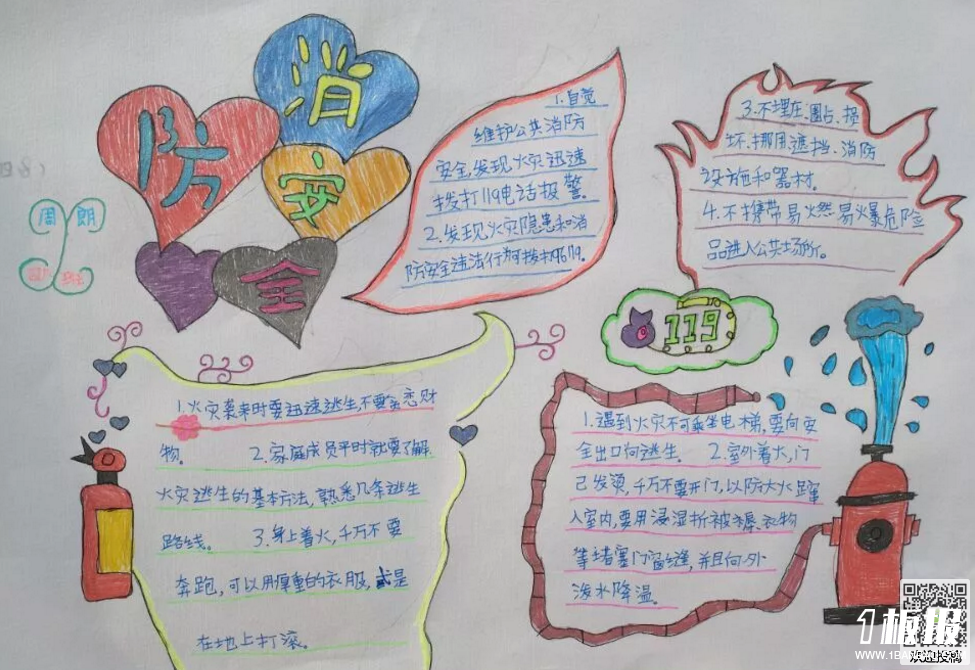 消
防
安
全
周 朗
1.自觉
维护公共消防
安全,发现火灾迅速
拨打119电话报警。
2.发现火灾隐患和消
防安全违法行为可拨打96119。
3.不埋压、圈占、损
坏、挪用、遮挡、消防
设施和器材。
4.不携带易火然易火暴危险
品进入公共场所。
119
1.火灾袭来时要迅速逃生,不要贪恋财
物。 2.家庭成员平时就要了解
火灾逃生的基本方法,熟悉几条逃生
路线。 3.身上着火,千万不要
奔跑,可以用厚重的衣服,或是
在地上打滚。
1.遇到火灾不可乘坐电梯,要向安
全出口向逃生。 2.室外着火,门
已发烫,千万不要开门,以防大火蹿
入室内,要用浸湿折被褥、衣物
等堵塞门窗缝,并且向外
泼水降温。
1板报
WWW.1BANBAO.COM